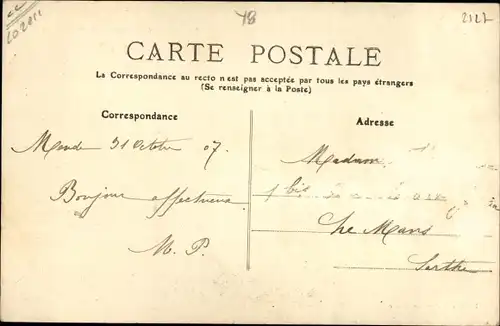 102811
78
2127
CARTE POSTALE
La Correspondance au recto n'est pas acceptée par tous les pays étrangers
(Se renseigner à la Poste)
Correspondance
Adresse
31 Octobre 07.
Bonjour affectueux
M. P.
Madame
bis
Le Mans
Sarthe